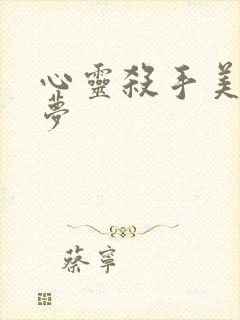 心靈殺手美
夢
蔡寧